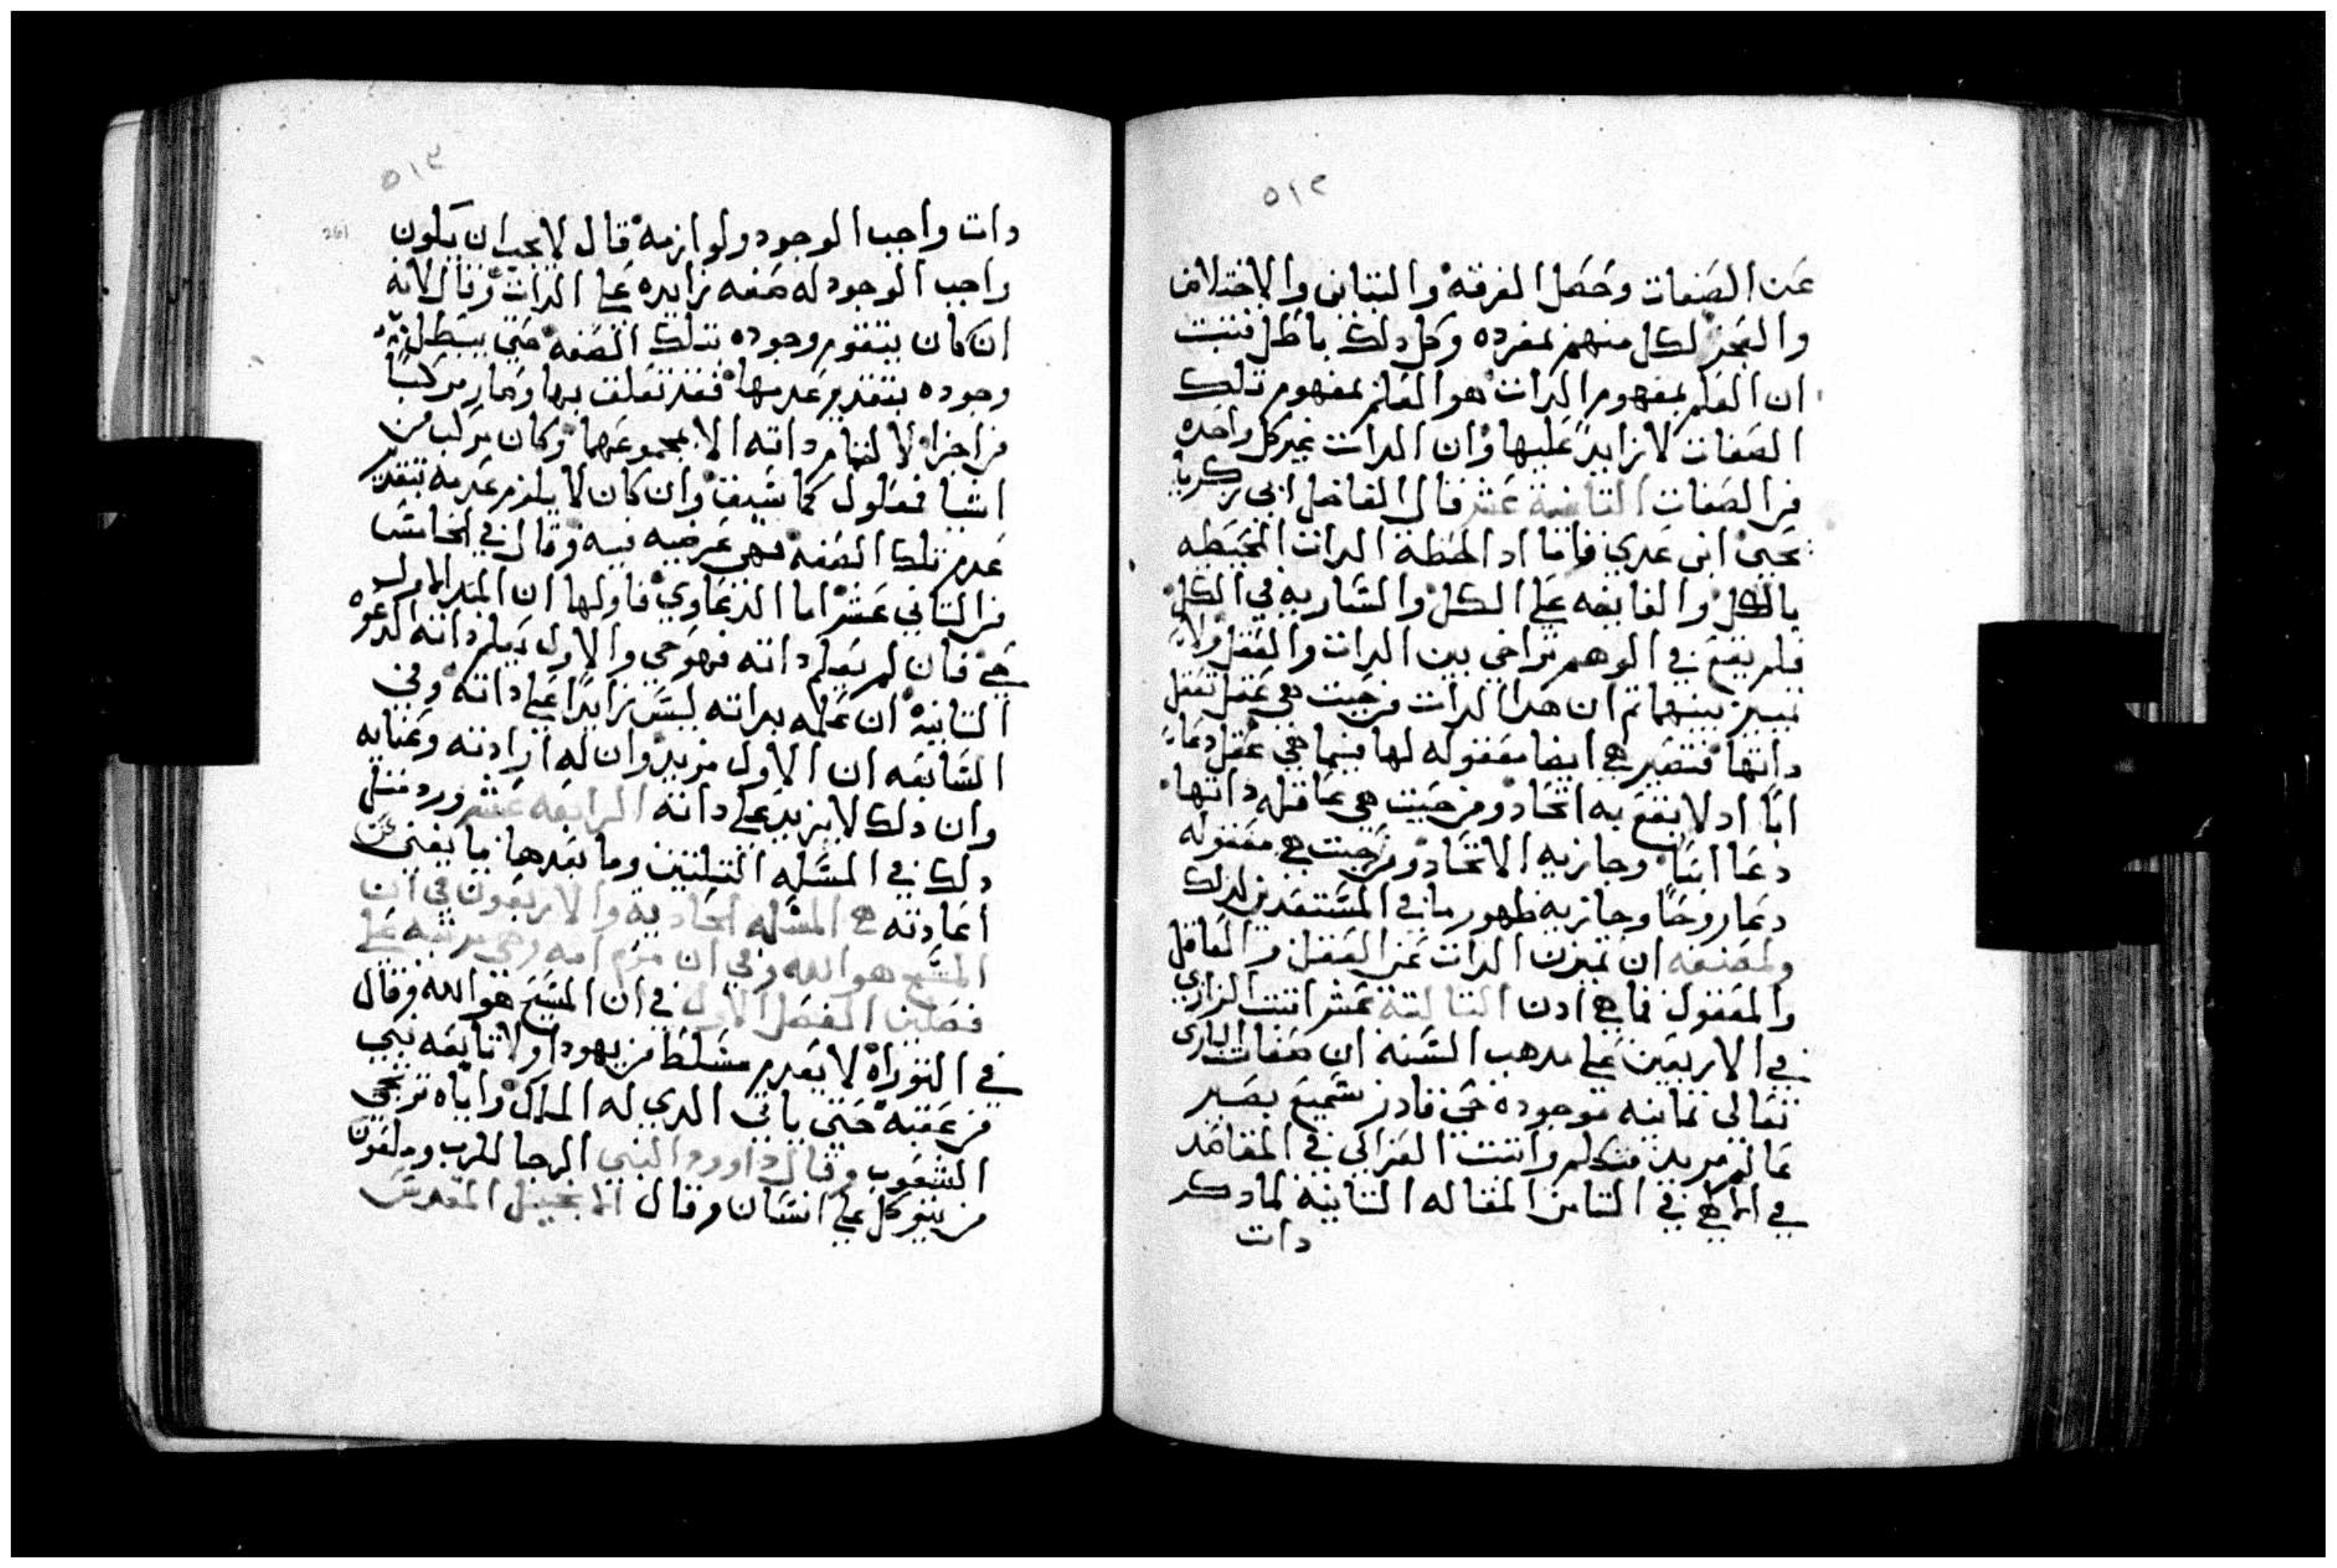 ٥١٢
عن الصفات وحصل الفرقه والتباين والاختلاف
والتحيز لكل منهم بمفرده وكل دلك باطل فتبت
ان العلم بمفهوم الدات هو العلم بمفهوم تلك
الصفات لا زايد عليها وان الدات غير كل واحده
من الصفات التانية عشر قال الفاضل ابي زكريا
يحيي ابن عدي فاما اد الحظه الدات المحيطه
بالكل والفايضه علي الكل والساريه في الكل
فلم يقع في الوهم تراخي بين الدات والعقل ولا
تمييز بينهما تم ان هدا الدات من حيت هي عقل تعقل
داتها فتصير هي ايضا معقوله لها فيما هي عقل دعا
ابا اد لا يقع به اتحاد ومن حيت هي عاقله داتها
دعا ابنا وجاز به الاتحاد ومن حيت هي معقوله
دعا روحا وجاز به ظهور ما في المستعدين لدلك
ولمصنفه ان تميزت الدات عن العقل والعاقل
والمعقول فما هي ادن التالتة عشر اتبت الرازي
في الاربعين علي مدهب السنه ان صفات الباري
تعالي تمانيه موجوده حي قادر سميع بصير
عالم مريد متكلم واتبت الغزالي في المقاصد
في الالاهي في التامن المقاله التانية لما دكر
دات
٥١٣
261
دات واجب الوجود ولوازمه قال لا يجب ان يكون
واجب الوجود له صفه زايده علي الدات وقال لانه
ان كان يتقوم وجوده بتلك الصفه حتي يبطل
وجوده بتقدير عدمها فقد تعلق بها وصار مركبا
من اجزا لا لتمام داته الا بمجموعهما وكان مركب من
اشيا فمعلول كما سبق وان كان لا يلزم عدمه بتقدير
عدم تلك الصفه فهي عرضيه فيه وقال في الخامس
من التاني عشر اما الدعاوي فاولها ان المبدا الاول
حي فان لم يعلم داته فهو حي والاول يعلم داته الدعوه
التانية ان علمه بداته ليس زايدا علي داته وفي
السابعه ان الاول مريد وان له ارادته وعنايه
وان دلك لا يزيد علي داته الرابعه عشر ورد متل
دلك في المسله التلتين وما بعدها ما يغني عن
اعادته هي المسله الحاديه والاربعون في ان
المسيح هو الله وفي ان مريم امه وهي مرتبه علي
فصلين الفصل الاول في ان المسيح هو الله وقال
في التوراه لا يعدم مسلط من يهودا ولا تابعه نبي
من عقبه حتي ياتي الدي له الملك واياه ترتجي
الشعوب وقال داوود النبي الرجا للرب وملعون
من يتوكل علي انسان وقال الانجيل المقدس